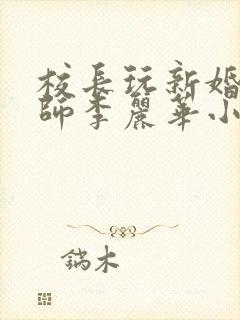 校長玩新婚
師李麗華小
鎬木